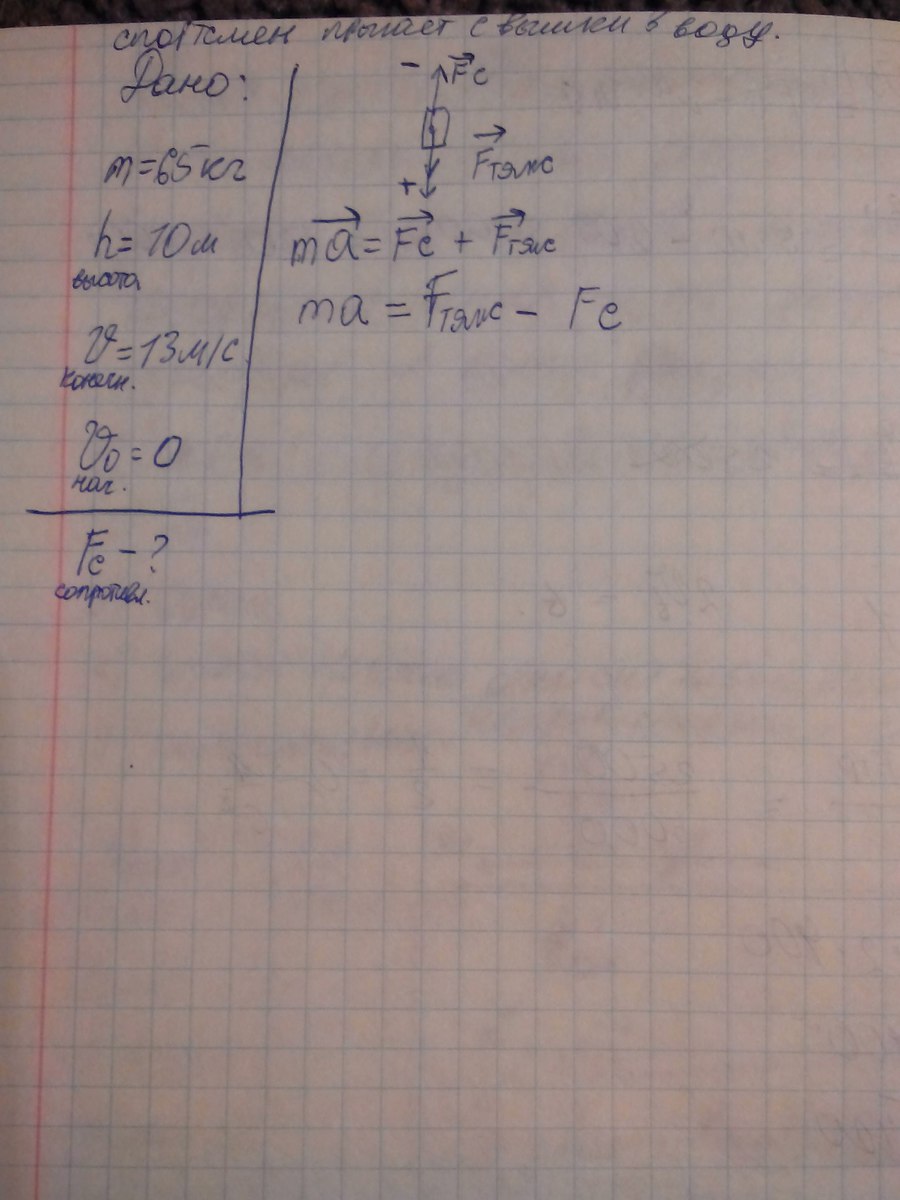 спортсмен прыгает с вышки в воду.
Дано:
m=65кг
h=10м
высота
υ=13м/с
конечн.
υ₀=0
нач.
Fc-?
сопротивл.
- Fc
Fтяж
+
ma = Fc + Fтяж
ma = Fтяж - Fc